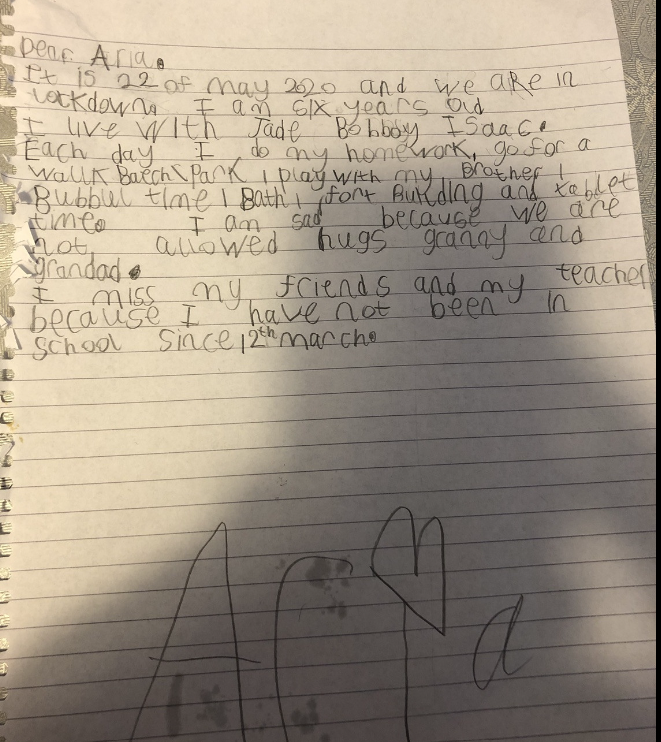 Dear Aria.
It is 22 of may 2020 and we aRe in
Lockdown. I am six years old
I live with Jade Bobboy ISaac.
Each day I do my homework, go for a
wallk Baech\Park, play with my Brother,
Bubbul time, Bath, fort Building and tablet
time. I am sad because we are
not allowed hugs granny and
grandad.
I miss my friends and my teacher
because I have not been in
School since 12th march.
Aria